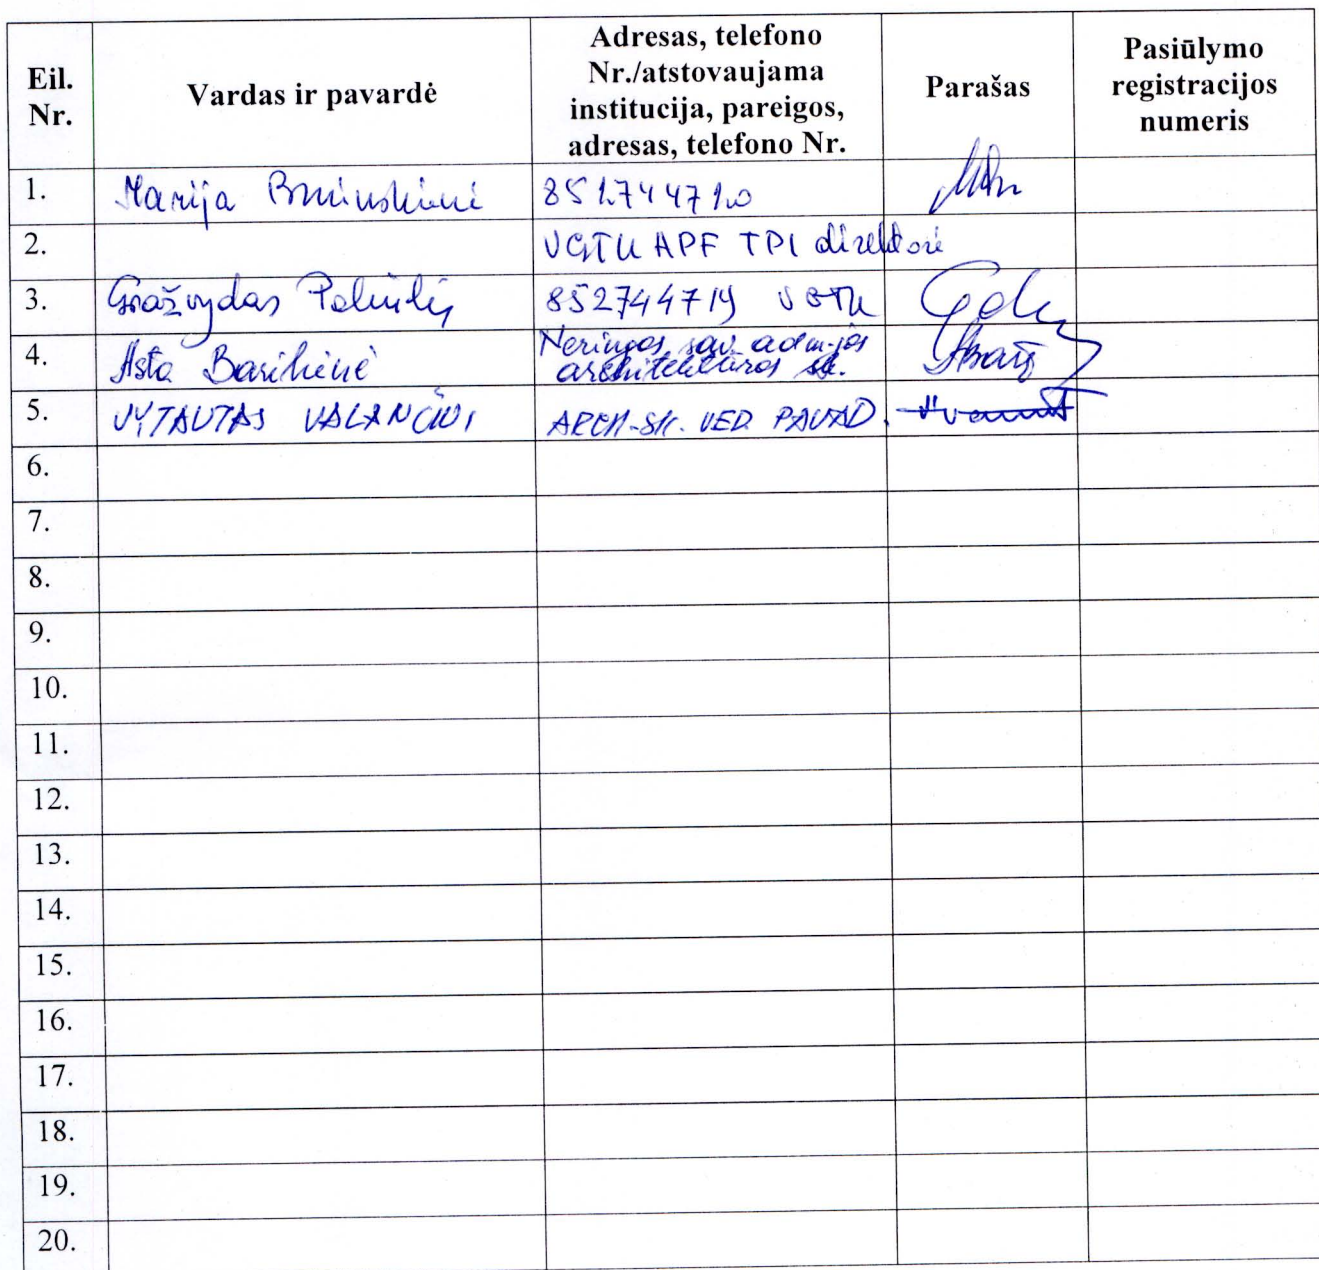 Eil. Nr. Vardas ir pavardė Adresas, telefono Nr./atstovaujama institucija, pareigos, adresas, telefono Nr. Parašas Pasiūlymo registracijos numeris
1. Marija 852744720
2. VGTU APF TPI direktorė
3. Gražvydas 852744719 VGTU
4. Asta Neringos sav. adm-jos
architektūros sk.
5. VYTAUTAS VALANČIUS ARCH-SK. VED. PAVAD.
6.
7.
8.
9.
10.
11.
12.
13.
14.
15.
16.
17.
18.
19.
20.